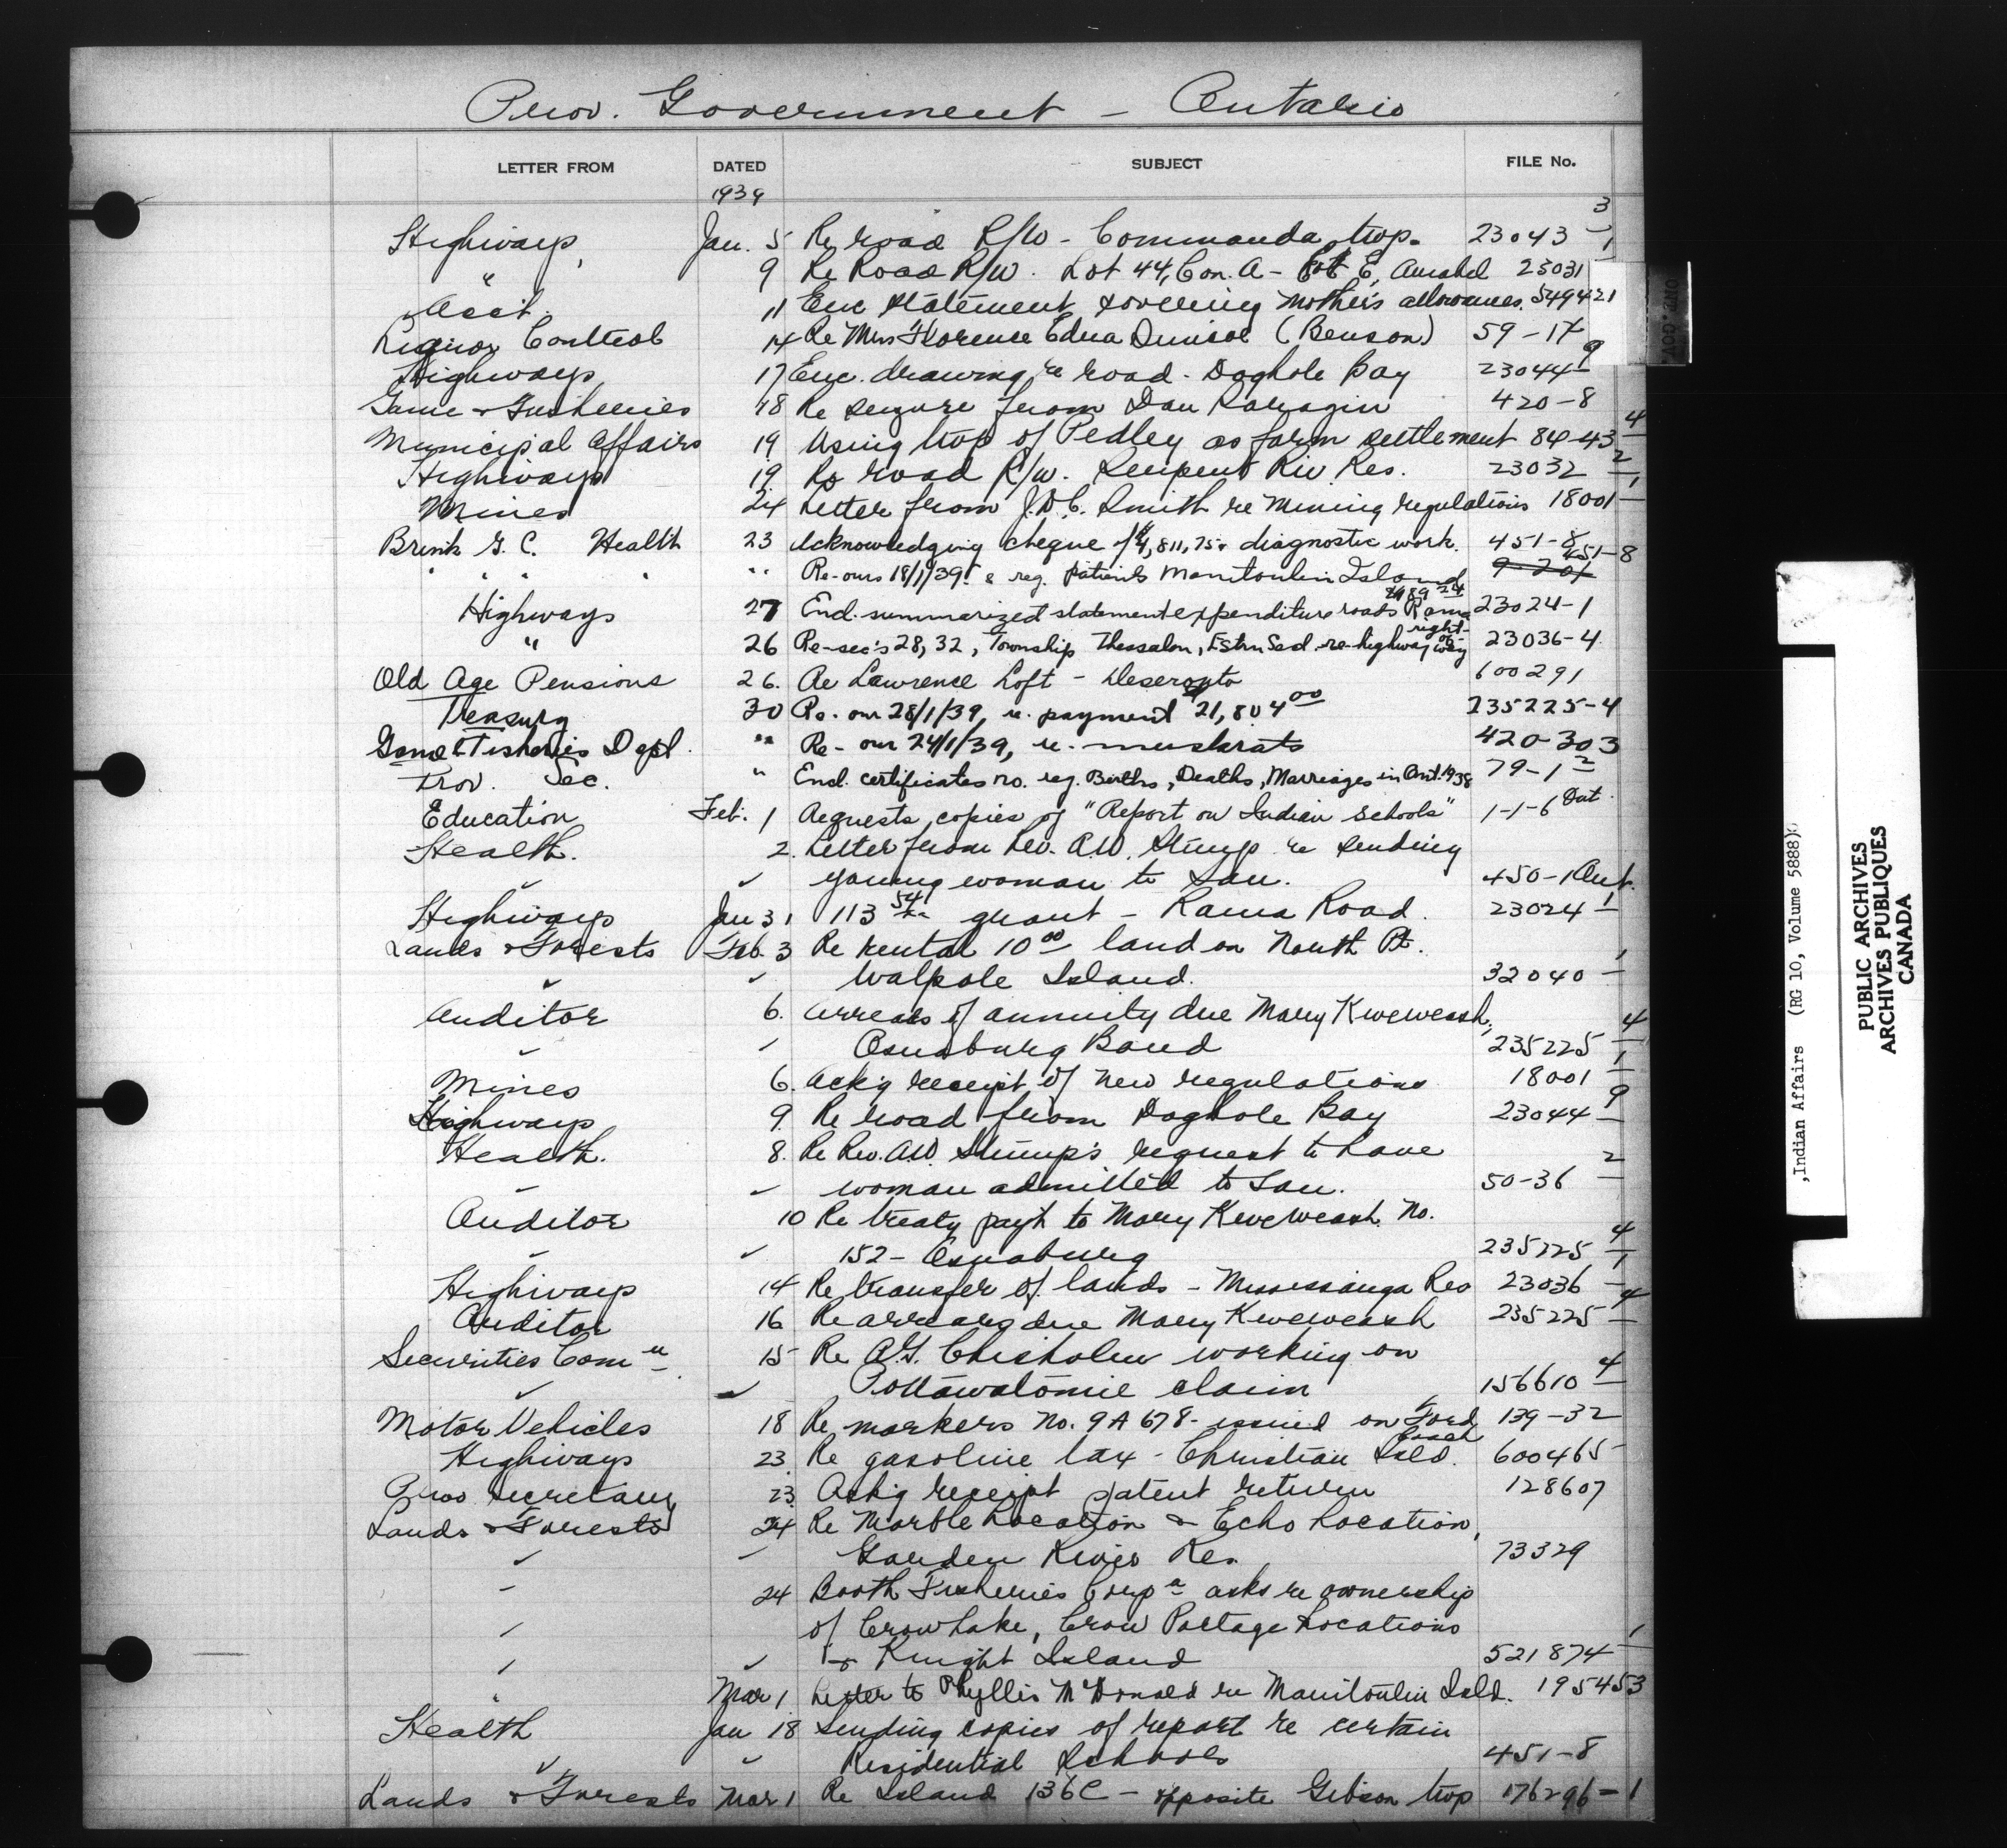 Prov. Government - Ontario
LETTER FROM DATED SUBJECT FILE No.
1939
Highways, Jan. 5 Re road R/W - Commanda twp. 23043-3/1
" 9 Re Road R/W. Lot 44, Con. A - E, Amabel 23031
Asst. 11 Enc statement covering mother's allowances. 549421
Liquor Control 14 Re Mrs Florence Edna (Benson) 59-17
Highways 17 Enc. drawing re road - Doghole Bay 23044-9
Game & Fisheries 18 Re seizure from Dan 420-8
Municipal Affairs 19 Using twp of Pedley as farm settlement 84-43-4
Highways 19 Re road R/W. Serpent Riv Res. 23032-2
Mines 24 Letter from J.D.C. Smith re Mining regulations 18001-1
Brink G. C. Health 23 Acknowledging cheque $4,811.75 diagnostic work. 451-8
" " " " " Re-ours 18/1/39 & reg. patients Manitoulin Island 451-8
Highways 27 Encl. summarized statement expenditure roads Rama 23024-1
" 26 Re-sec's 28, 32, Township Thessalon, Estrn Sed. re-highway right-of-way 23036-4
Old Age Pensions 26. Re Lawrence Loft - Deseronto 600291
Treasury 30 Re. our 28/1/39, re. payment 21,804 00 235225-4
Game & Fisheries Dept. " Re- our 24/1/39, re. muskrats 420-303
Prov. Sec. " Encl. certificates no. reg. Births, Deaths, Marriages in Ont. 1938 79-1-2
Education Feb. 1 Requests copies of "Report on Indian Schools" 1-1-6 Ont.
Health. 2. Letter from Rev. A.W. Stump re sending
✓ ✓ young woman to San. 450-1 Ont.
Highways Jan 31 113 54 grant - Rama Road. 23024-1
Lands & Forests Feb. 3 Re rental 10 00 land on North Pt.
✓ ✓ Walpole Island. 32040-1
Auditor 6. Arrears of annuity due Mary Kweweash,
✓ ✓ Osnaburg Band 235225-4
Mines 6. Ack'g receipt of new regulations 18001-1
Highways 9. Re road from Doghole Bay 23044-9
Health. 8. Re Rev. A.W. Stump's request to have
✓ ✓ woman admitted to San. 50-36-2
Auditor 10 Re treaty pay't to Mary Kweweash No.
✓ ✓ 152 - Osnaburg 235225-4
Highways 14 Re transfer of lands - Mississauga Res 23036-1
Auditor 16 Re arrears due Mary Kweweash 235225-4
Securities Comn. 15 Re A.G. Chisholm working on
✓ ✓ Pottawatomie claim 156610-4
Motor Vehicles 18 Re markers No. 9A678 - issued on Ford Coach 139-32
Highways 23. Re gasoline tax - Christian Isld. 600465
Prov Secretary 23. Ack'g receipt patent return 128607
Lands & Forests 24 Re Marble Location & Echo Location,
✓ ✓ Garden River Res. 73329
24 Booth Fisheries Corpn asks re ownership
of Crow Lake, Crow Portage Locations
✓ & Knight Island 521874-1
" Mar 1 Letter to Phyllis McDonald re Manitoulin Isld. 195453
Health Jan 18 Sending copies of report re certain
✓ ✓ Residential Schools 451-8
Lands & Forests Mar 1 Re Island 136C - opposite Gibson twp 176296-1
,Indian Affairs (RG 10, Volume 5888)
PUBLIC ARCHIVES
ARCHIVES PUBLIQUES
CANADA